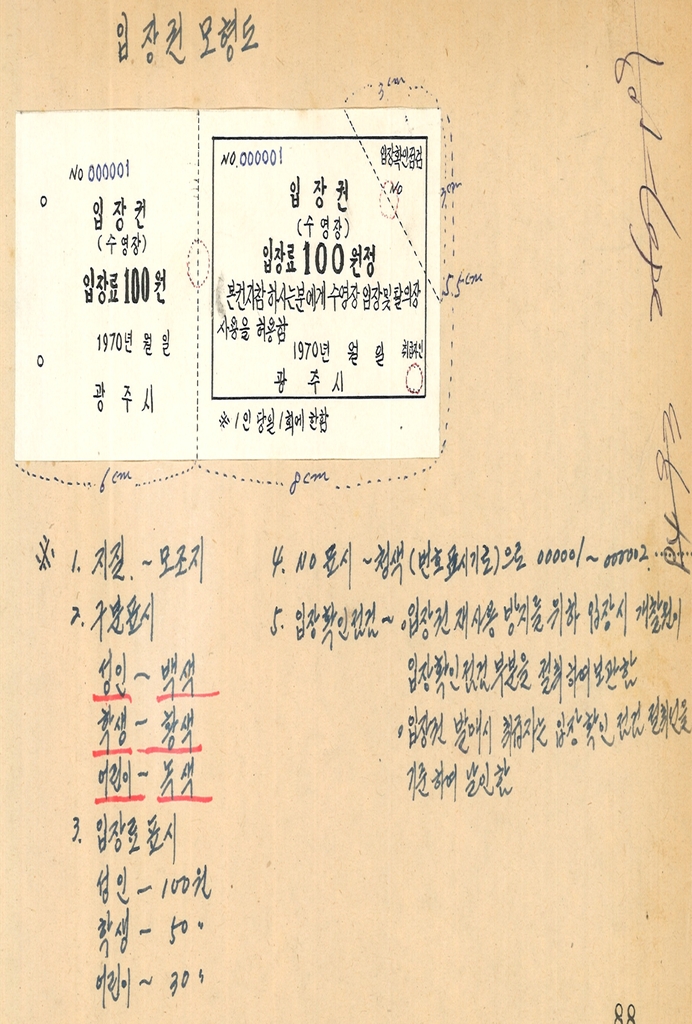 입장권 모형도
3cm
NO 000001
입장권
(수영장)
입장료 100원
1970년 월 일
광주시
NO. 000001
입장확인점검
NO
입장권
(수영장)
입장료 100원정
본권지참하시는분에게 수영장 입장및 탈의장
사용을 허용함
1970년 월 일 취급자인
광주시
※ 1인 당일 1회에 한함
3cm
5.5cm
6cm
8cm
※ 1. 지질. ~ 모조지
2. 구분표시
성인 ~ 백색
학생 ~ 황색
어린이 ~ 녹색
3. 입장료 표시
성인 ~ 100원
학생 ~ 50 〃
어린이 ~ 30 〃
4. NO 표시 ~ 청색 (번호표시기로)으로 000001 ~ 000002.......
5. 입장확인점검 ~ 。입장권 재사용 방지를 위하 입장시 개찰원이
입장확인점검 부분을 절취하여 보관함
。입장권 발매시 취급자는 입장확인 점검 절취선을
기준하여 날인함
88